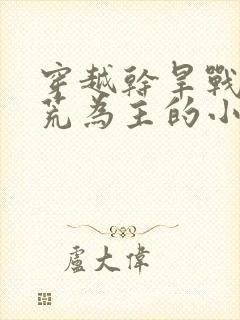 穿越幹旱戰
荒為主的小
盧大偉